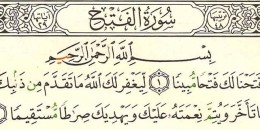 سُورَةُ الفَتْحِ
بِسْمِ اللَّهِ الرَّحْمَٰنِ الرَّحِيمِ
فَتَحْنَا لَكَ فَتْحًا مُّبِينًا ١ لِّيَغْفِرَ لَكَ اللَّهُ مَا تَقَدَّمَ مِن ذَنۢبِكَ
مَا تَأَخَّرَ وَيُتِمَّ نِعْمَتَهُۥ عَلَيْكَ وَيَهْدِيَكَ صِرَٰطًا مُّسْتَقِيمًا